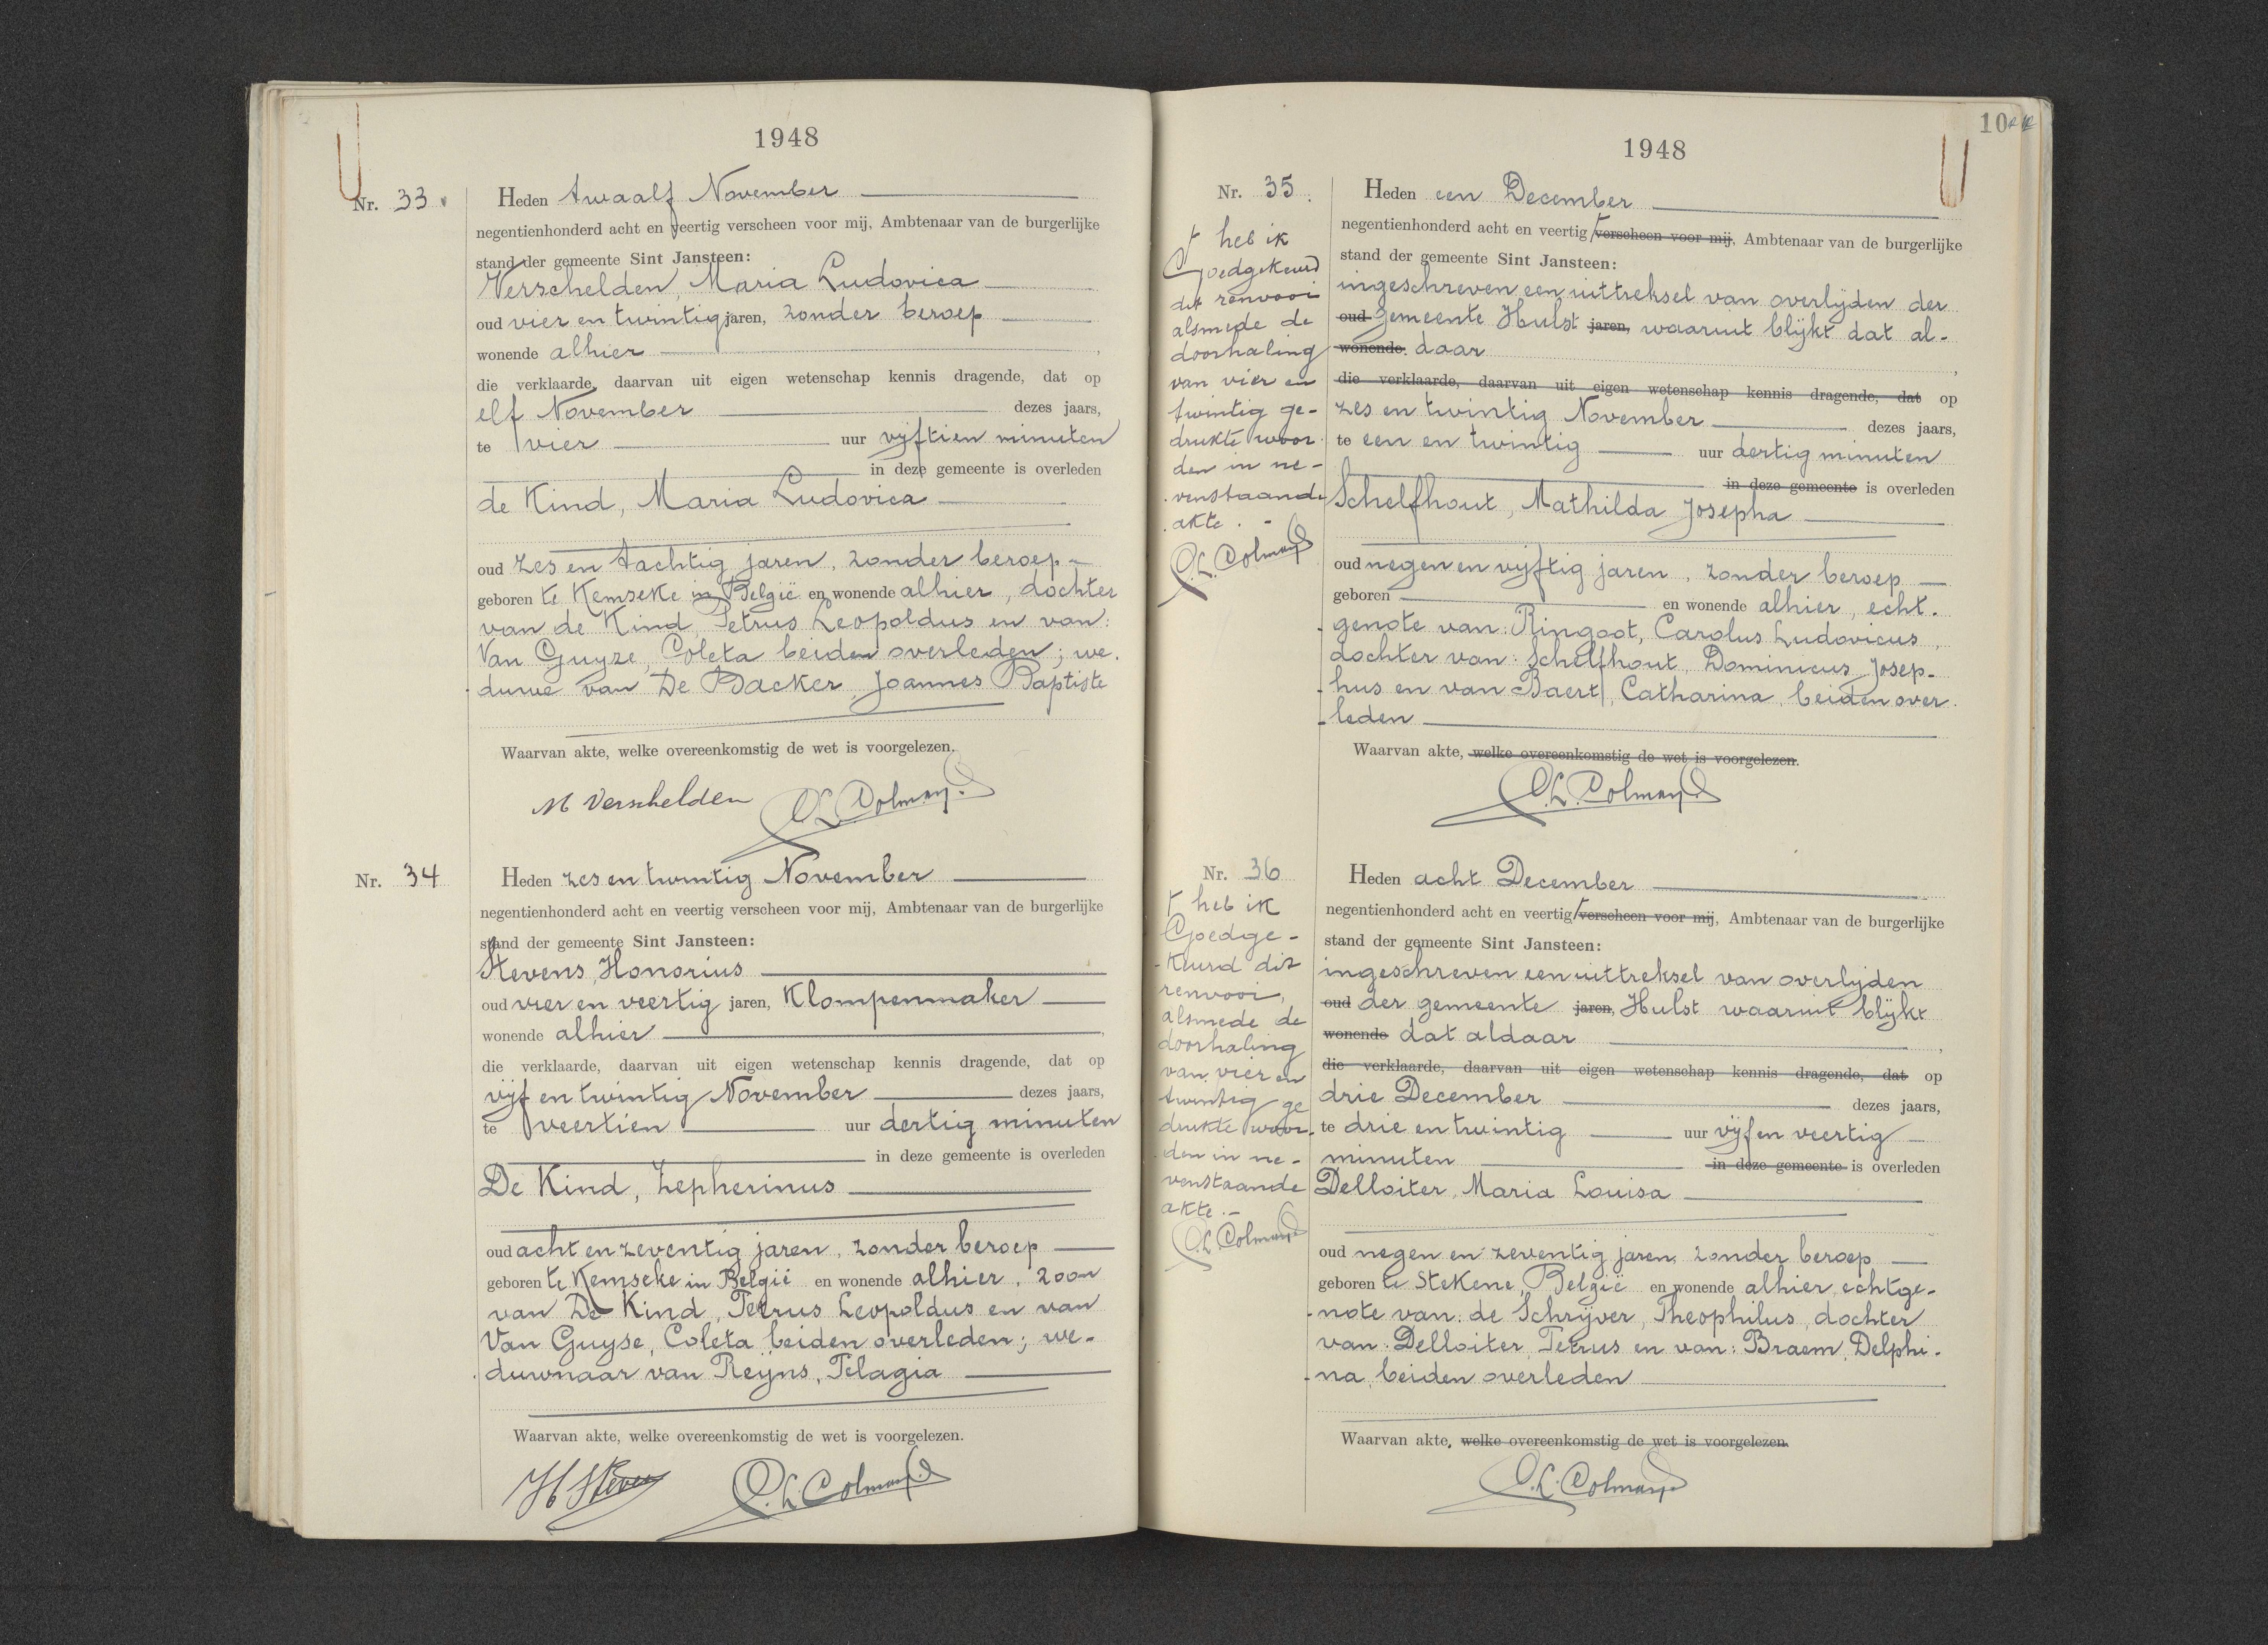 1948
Nr. 33
Heden twaalf November
negentienhonderd acht en veertig verscheen voor mij, Ambtenaar van de burgerlijke
stand der gemeente Sint Jansteen:
Verschelden, Maria Ludovica
oud vier en twintig jaren, zonder beroep
wonende alhier,
die verklaarde, daarvan uit eigen wetenschap kennis dragende, dat op
elf November dezes jaars,
te vier uur vijftien minuten
in deze gemeente is overleden
de Kind, Maria Ludovica
oud zes en tachtig jaren, zonder beroep
geboren te Kemseke in België en wonende alhier, dochter
van de Kind, Petrus Leopoldus en van:
Van Guyze, Coleta beiden overleden; we-
duwe van De Backer Joannes Baptiste
Waarvan akte, welke overeenkomstig de wet is voorgelezen.
M Verschelden
C.L. Colman
Nr. 34
Heden zes en twintig November
negentienhonderd acht en veertig verscheen voor mij, Ambtenaar van de burgerlijke
stand der gemeente Sint Jansteen:
Stevens, Honorius
oud vier en veertig jaren, Klompenmaker
wonende alhier,
die verklaarde, daarvan uit eigen wetenschap kennis dragende, dat op
vijf en twintig November dezes jaars,
te veertien uur dertig minuten
in deze gemeente is overleden
De Kind, Zepherinus
oud acht en zeventig jaren, zonder beroep
geboren te Kemseke in België en wonende alhier, zoon
van De Kind, Petrus Leopoldus en van
Van Guyse, Coleta beiden overleden; we-
duwnaar van Reijns, Pelagia
Waarvan akte, welke overeenkomstig de wet is voorgelezen.
H Steven
C.L. Colman
10
1948
Nr. 35.
heb ik
Goedgekeurd
dit renvooi
alsmede de
doorhaling
van vier en
twintig ge-
drukte woor-
den in ne-
venstaande
akte.-
C.L. Colman
Heden een December
negentienhonderd acht en veertig verscheen voor mij, Ambtenaar van de burgerlijke
stand der gemeente Sint Jansteen:
ingeschreven een uittreksel van overlijden der
oud Gemeente Hulst jaren, waaruit blijkt dat al-
wonende daar,
die verklaarde, daarvan uit eigen wetenschap kennis dragende, dat op
zes en twintig November dezes jaars,
te een en twintig uur dertig minuten
in deze gemeente is overleden
Schelfhout, Mathilda Josepha
oud negen en vijftig jaren, zonder beroep
geboren en wonende alhier, echt-
genote van: Ringoot, Carolus Ludovicus,
dochter van: Schelfhout, Dominicus Josep-
hus en van Baert, Catharina, beiden over-
leden
Waarvan akte, welke overeenkomstig de wet is voorgelezen.
C.L. Colman
Nr. 36
heb ik
Goedge-
keurd dit
renvooi,
alsmede de
doorhaling
van vier en
twintig ge
drukte woor-
den in ne-
venstaande
akte.-
C.L. Colman
Heden acht December
negentienhonderd acht en veertig verscheen voor mij, Ambtenaar van de burgerlijke
stand der gemeente Sint Jansteen:
ingeschreven een uittreksel van overlijden
oud der gemeente jaren, Hulst waaruit blijkt
wonende dat aldaar,
die verklaarde, daarvan uit eigen wetenschap kennis dragende, dat op
drie December dezes jaars,
te drie en twintig uur vijf en veertig
minuten in deze gemeente is overleden
Delloiter, Maria Louisa
oud negen en zeventig jaren, zonder beroep
geboren te Stekene, België en wonende alhier, echtge-
note van: de Schrijver, Theophilus, dochter
van: Delloiter, Petrus en van: Braem, Delphi-
na, beiden overleden
Waarvan akte, welke overeenkomstig de wet is voorgelezen.
C.L. Colman